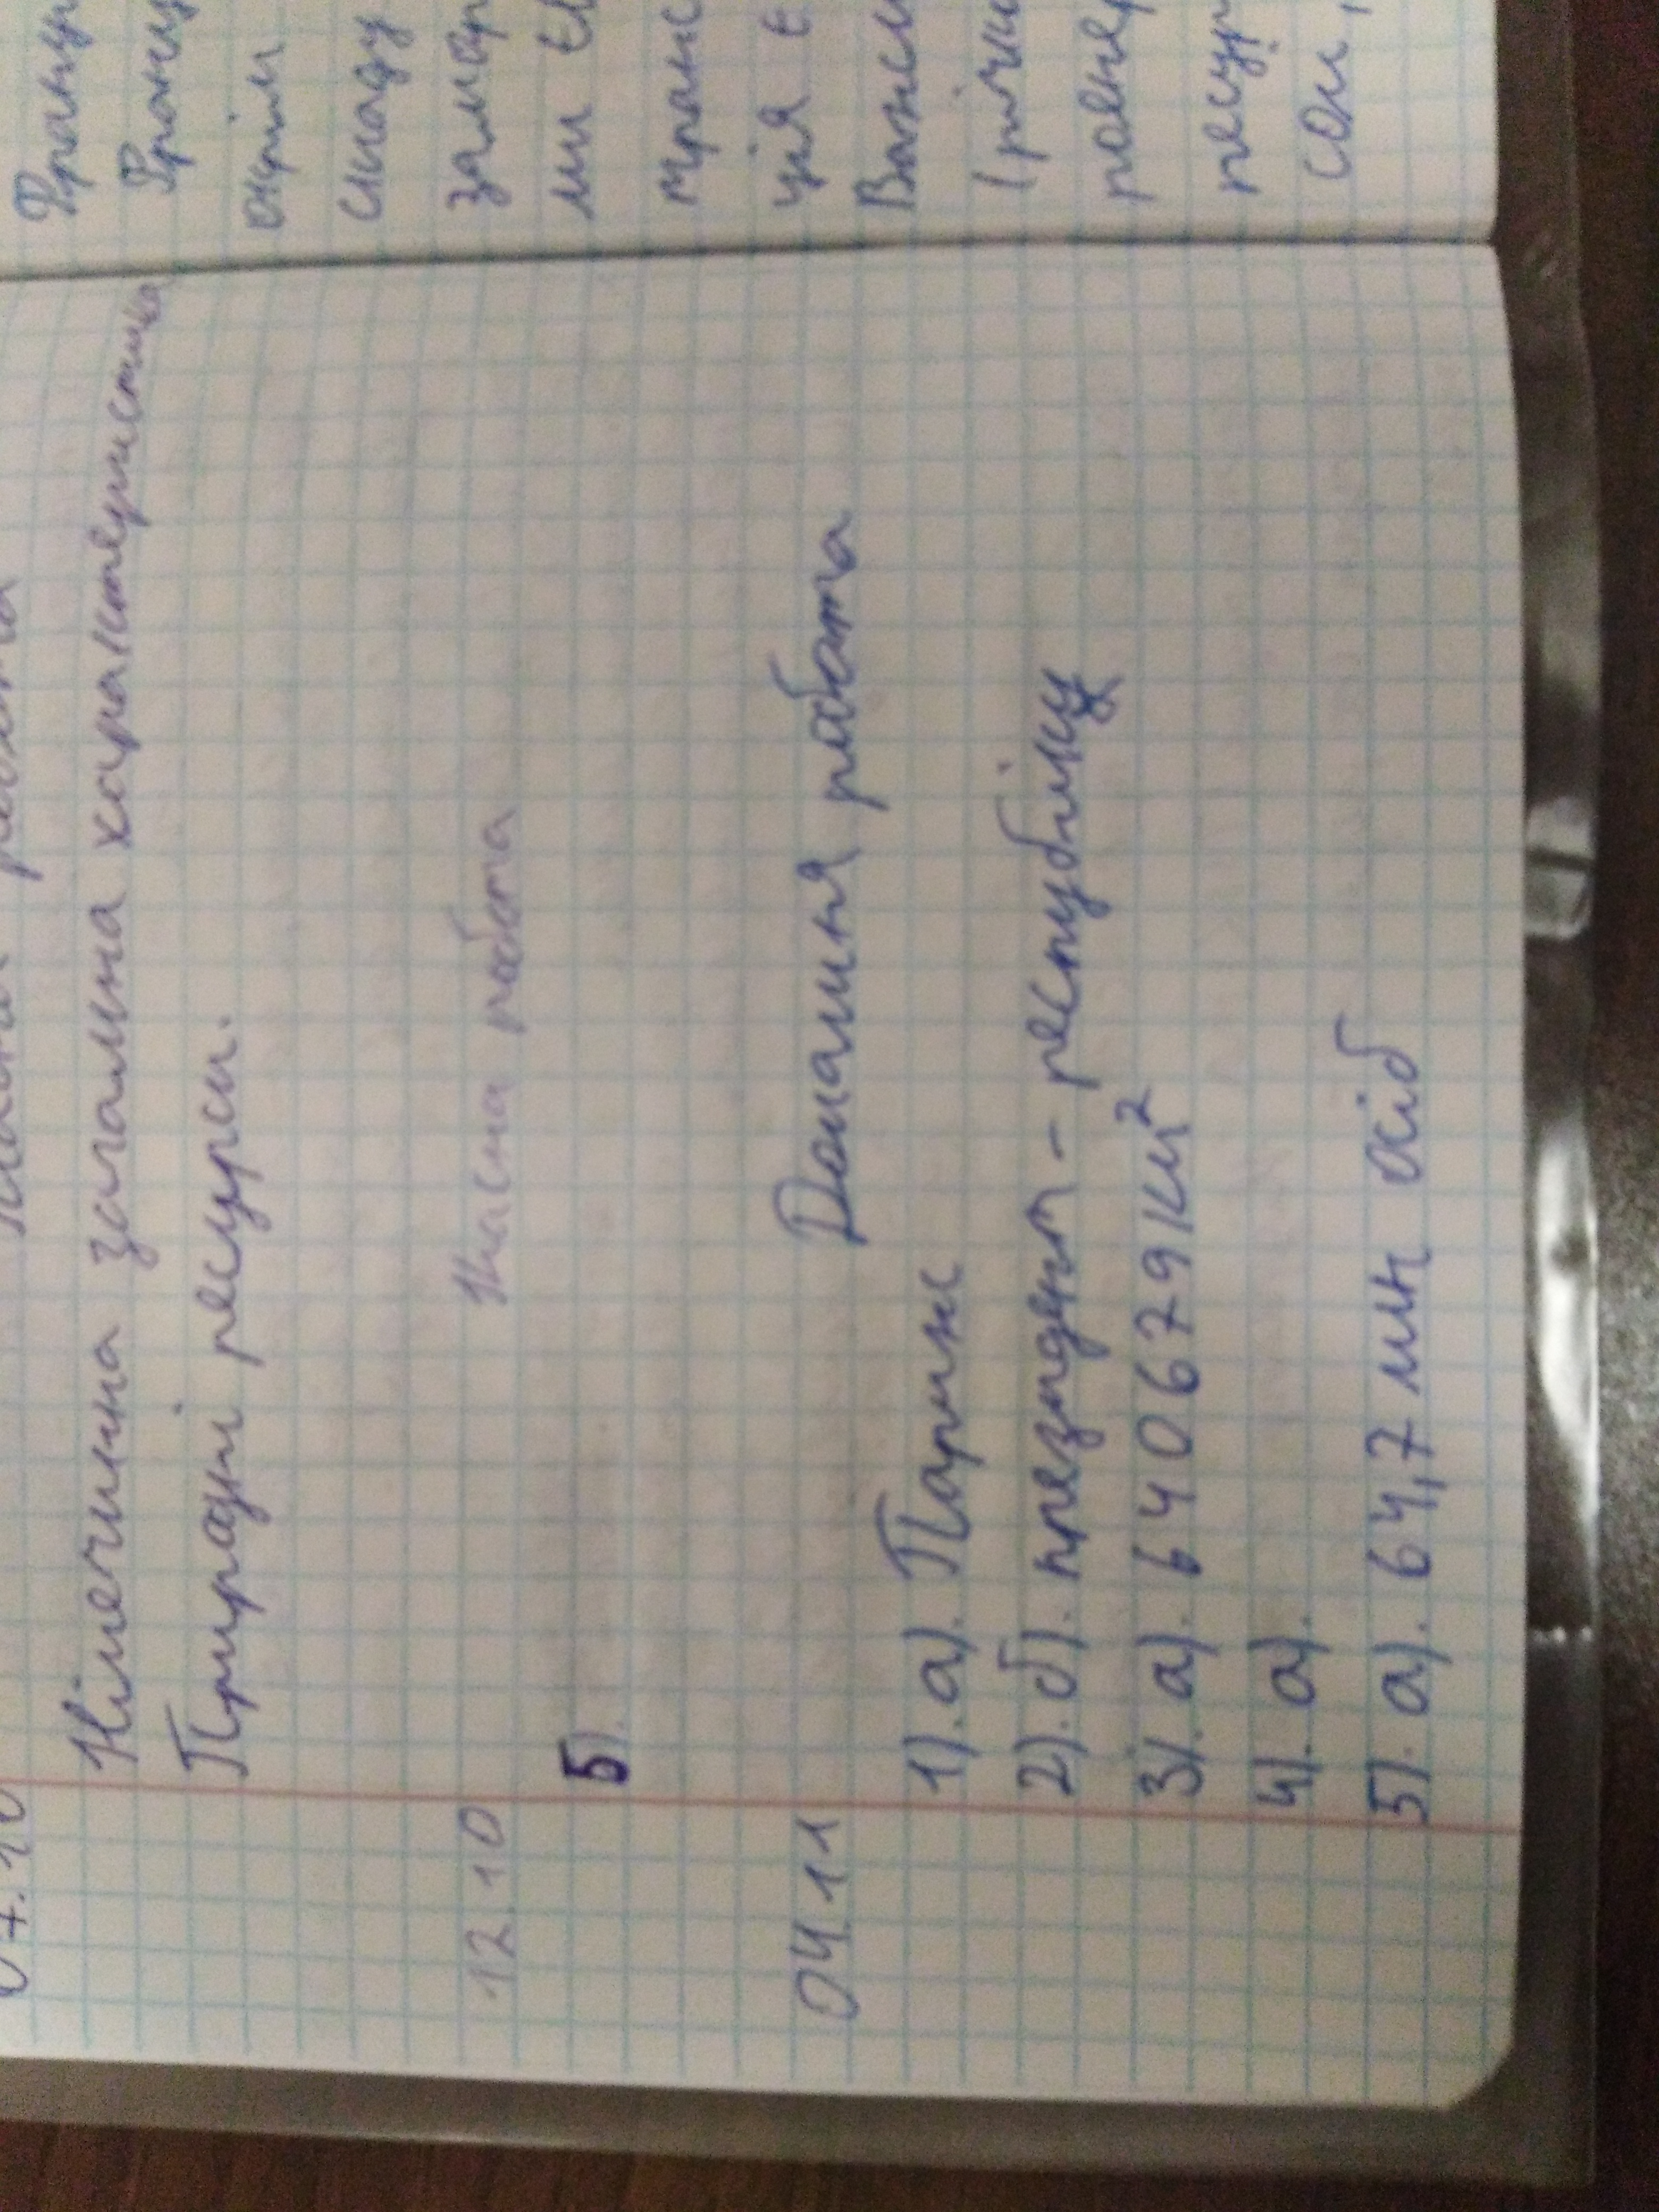 07.10
Німечинна загальна характеристика
Природні ресурси.
12 10 Класна робота
5).
04.11 Домашня робота
1). а). Париж
2). б). президент - республіку
3). а). 640679 км²
4). а).
5). а). 64,7 млн осіб
Франц
Франц
окрім
складу
замор
ми є
транс
ція є
Важли
(річки
розвер
ресур
солі,